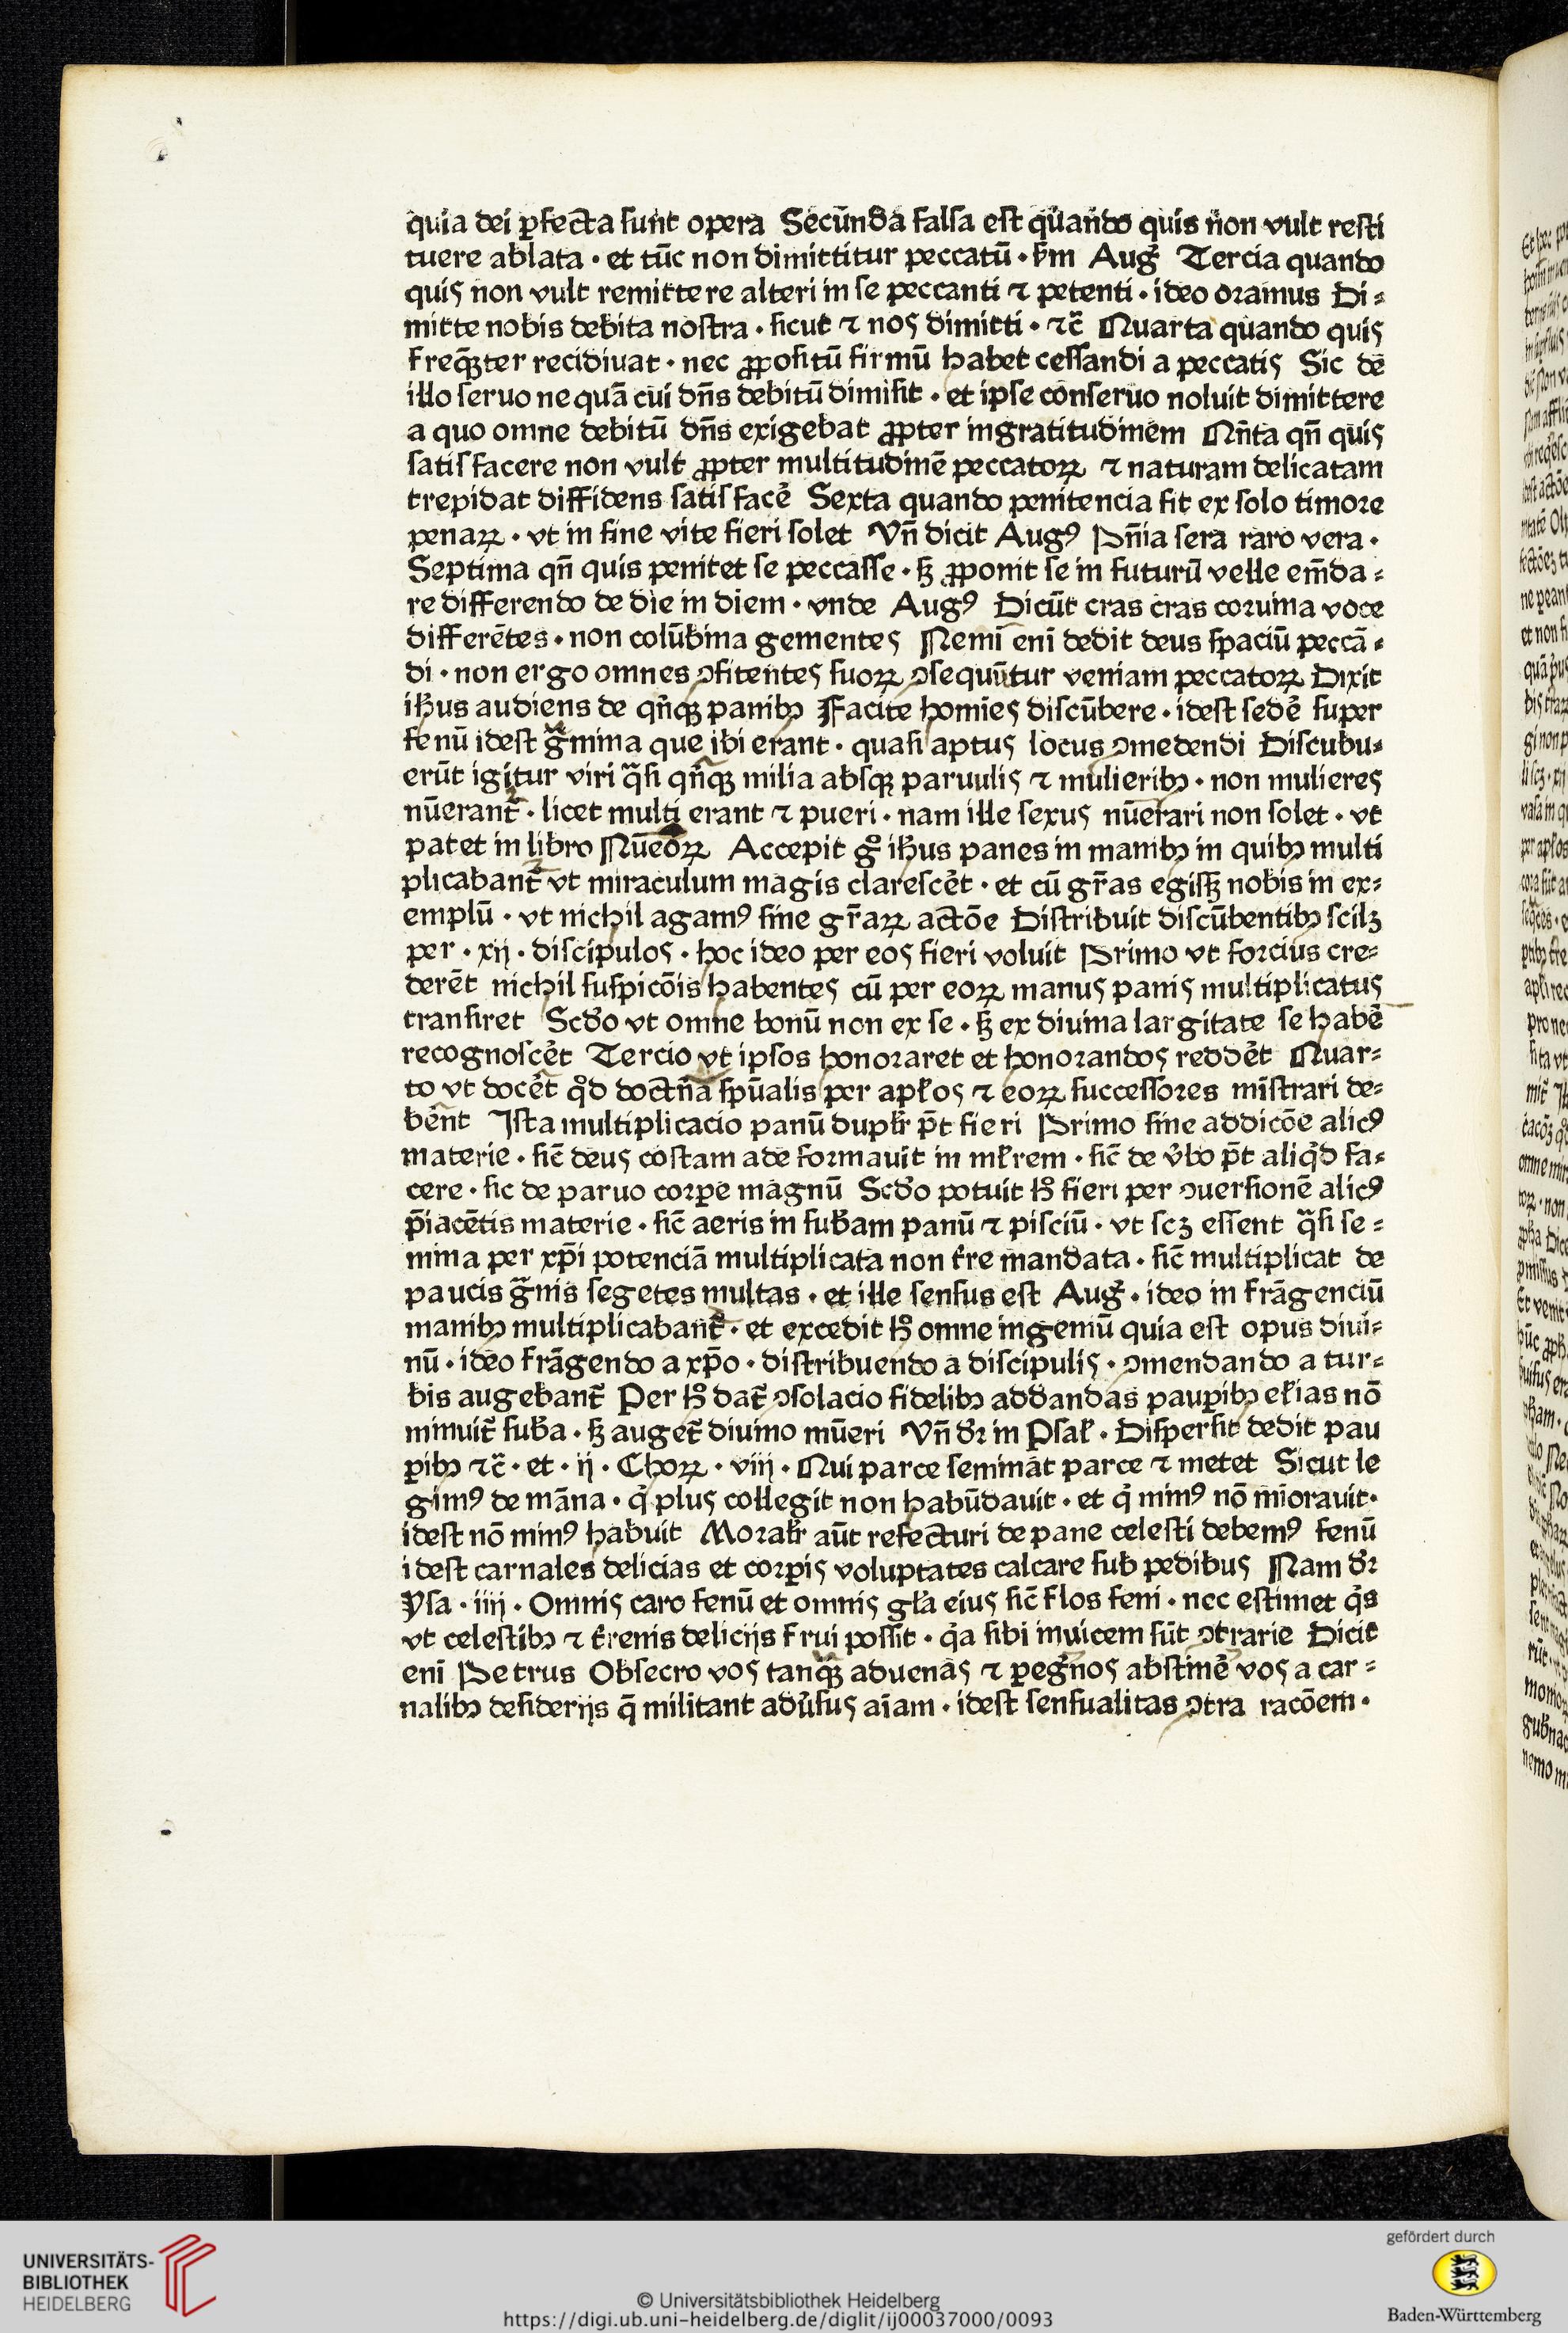 quia dei ꝑfecta ſunt opera Secūnda falſa eſt quando quis non vult reſti
tuere ablata · et tūc non dimittitur peccatū · ẜm Augꝰ Tercia quando
quiſ non vult remittere alteri in ſe peccanti ⁊ petenti · ideo oramus Di⸗
mitte nobis debita noſtra · ſicut ⁊ noſ dimitti · ⁊c̄ Quarta quando quiſ
freqꝫter recidiuat · nec ꝓpoſitū firmū habet ceſſandi a peccatiſ Sic de
illo ſeruo nequā cui dn̄s debitū dimiſit · et ipſe conſeruo noluit dimittere
a quo omne debitū dn̄s exigebat ꝓpter ingratitudinem Qn̄ta qn̄ quiſ
ſatiſfacere non vult ꝓpter multitudinē peccatoꝝ ⁊ naturam delicatam
trepidat diffidens ſatiſfacē Sexta quando penitencia fit ex ſolo timore
penaꝝ · vt in fine vite fieri ſolet Vn̄ dicit Augꝰ Pn̄ia ſera raro vera ·
Septima qn̄ quis penitet ſe peccaſſe · ſꝫ ꝓponit ſe in futurū velle em̄da⸗
re differendo de die in diem · vnde Augꝰ Dicūt cras cras coruina voce
differētes · non colūbina gementeſ Nemi enī dedit deus ſpaciū peccā⸗
di · non ergo omnes ꝯfitenteſ ſuoꝝ ꝯſequūtur veniam peccatoꝝ Dixit
ihus audiens de qn̄qꝫ panibꝫ Facite homīeſ diſcūbere · ideſt ſedē ſuper
fenū ideſt gͣmina que ibi erant · quaſi aptuſ locus ꝯmedendi Diſcubu⸗
erūt igitur viri qͣſi qn̄qꝫ milia abſqꝫ paruuliſ ⁊ mulieribꝫ · non muliereſ
nūerant᷑ · licet multi erant ⁊ pueri · nam ille ſexuſ nūerari non ſolet · vt
patet in libro Nūeoꝝ Accepit gͦ ihus panes in manibꝫ in quibꝫ multi
plicabant᷑ vt miraculum magis clareſcēt · et cū gr̄as egiſꝫ nobis in ex⸗
emplū · vt nichil agamꝰ ſine gr̄aꝝ actōe Diſtribuit diſcūbentibꝫ ſcilꝫ
per · xij · diſcipuloſ · hoc ideo per eoſ fieri voluit Primo vt forcius cre⸗
derēt nichil ſuſpicōis habenteſ cū per eoꝝ manuſ paniſ multiplicatuſ
tranſiret Scd̄o vt omne bonū non ex ſe · ſꝫ ex diuina largitate ſe habē
recognoſcēt Tercio vt ipſos honoraret et honorandoſ reddēt Quar⸗
to vt docēt qd̄ doctn̄a ſpūalis per apl̄oſ ⁊ eoꝝ ſucceſſores mīſtrari de⸗
bēnt Iſta multiplicacio panū dupl̄r p̄t fieri Primo ſine addicōe alicꝰ
materie · ſic̄ deuſ coſtam ade formauit in ml̄rem · ſic̄ de v̄bo p̄t aliqd̄ fa⸗
cere · ſic de paruo corꝑe magnū Scd̄o potuit hͦ fieri per ꝯuerſionē alicꝰ
p̄iacētis materie · ſic̄ aeris in ſub̄am panū ⁊ piſciū · vt ſcꝫ eſſent qͣſi ſe⸗
mina per xp̄i potenciā multiplicata non t̄re mandata · ſic̄ multiplicat de
paucis gͣnis ſegetes multas · et ille ſenſus eſt Augꝰ · ideo in frāgenciū
manibꝫ multiplicabant᷑ · et excedit hͦ omne ingeniū quia eſt opus diui⸗
nū · ideo frāgendo a xp̄o · diſtribuendo a diſcipuliſ · ꝯmendando a tur⸗
bis augebant᷑ Per hͦ dat᷑ ꝯſolacio fidelibꝫ ad dandas pauꝑibꝫ el̄ias nō
minuit᷑ ſub̄a · ſꝫ auget᷑ diuino mūeri Vn̄ dr̄ in Pſal̄ · Diſperſit dedit pau
ꝑibꝫ ⁊c̄ · et · ij · Choꝝ · viij · Qui parce ſemināt parce ⁊ metet Sicut le
gimꝰ de māna · q̇ pluſ collegit non habūdauit · et q̇ minꝰ nō mīorauit ·
ideſt nō minꝰ habuit Moral̄r aūt refecturi de pane celeſti debemꝰ fenū
ideſt carnales delicias et corꝑiſ voluptates calcare ſub pedibuſ Nam dr̄
Yſa · iiij · Omniſ caro fenū et omniſ gl̄a eiuſ ſic̄ flos feni · nec eſtimet q̇s
vt celeſtibꝫ ⁊ t̄renis delicijs frui poſſit · qͣa ſibi inuicem ſūt ꝯtrarie Dicit
enī Petrus Obſecro voſ tanqͣꝫ aduenaſ ⁊ ꝑegͥnoſ abſtinē voſ a car⸗
nalibꝫ deſiderijs q̄ militant adūſuſ aīam · ideſt ſenſualitas ꝯtra racōem ·
UNIVERSITÄTS-
BIBLIOTHEK
HEIDELBERG
© Universitätsbibliothek Heidelberg
https://digi.ub.uni-heidelberg.de/diglit/ij00037000/0093
gefördert durch
Baden-Württemberg